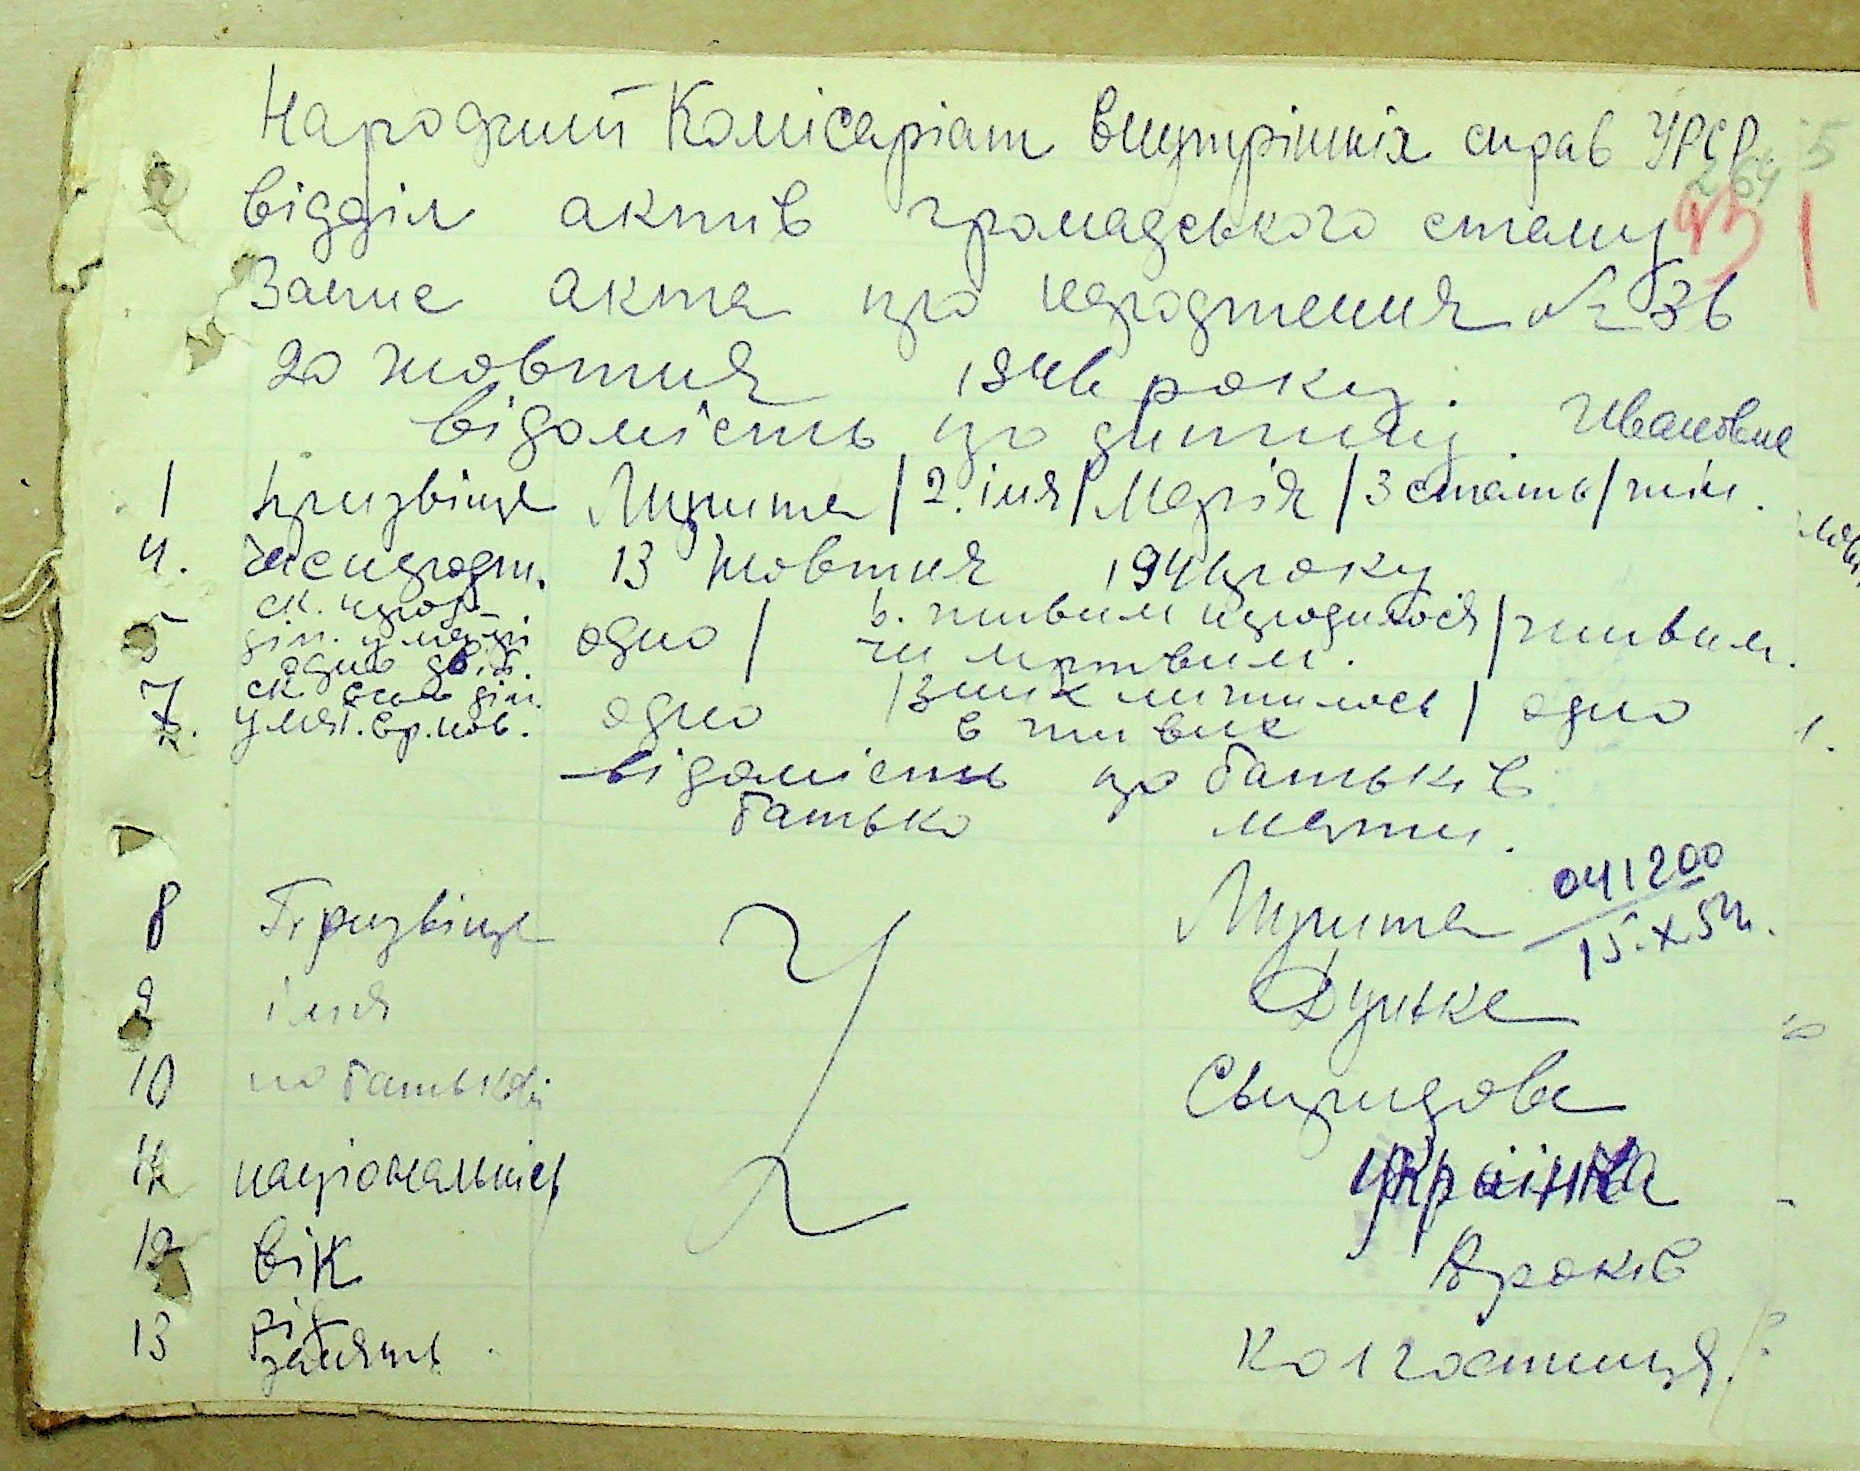 Народний Комісаріат внутрішніх справ УРСР
264
93
відділ актів громадського стану
Запис акта про народження № 36
20 жовтня 1944 року.
відомість про дитину. Ивановне
1 призвіще Микита / 2. імя / Марія / 3 стать / жін.
4. час народж. 13 жовтня 1944 року
5 ск. народ-
діп. у матері
одно двій. одно / 6. живим народилося / живим.
чи мртвим.
7 ск. всьо діп.
у мат. вр. нов. одно / З них личилось / одно
в живих
відомість про батьків
батько мати.
8 Призвіще Микита 041200
15.X.54.
9 імя
10 по батькові Свиридова
11 національність Українка
12 вік років
13 рід
занять Колгостниця.